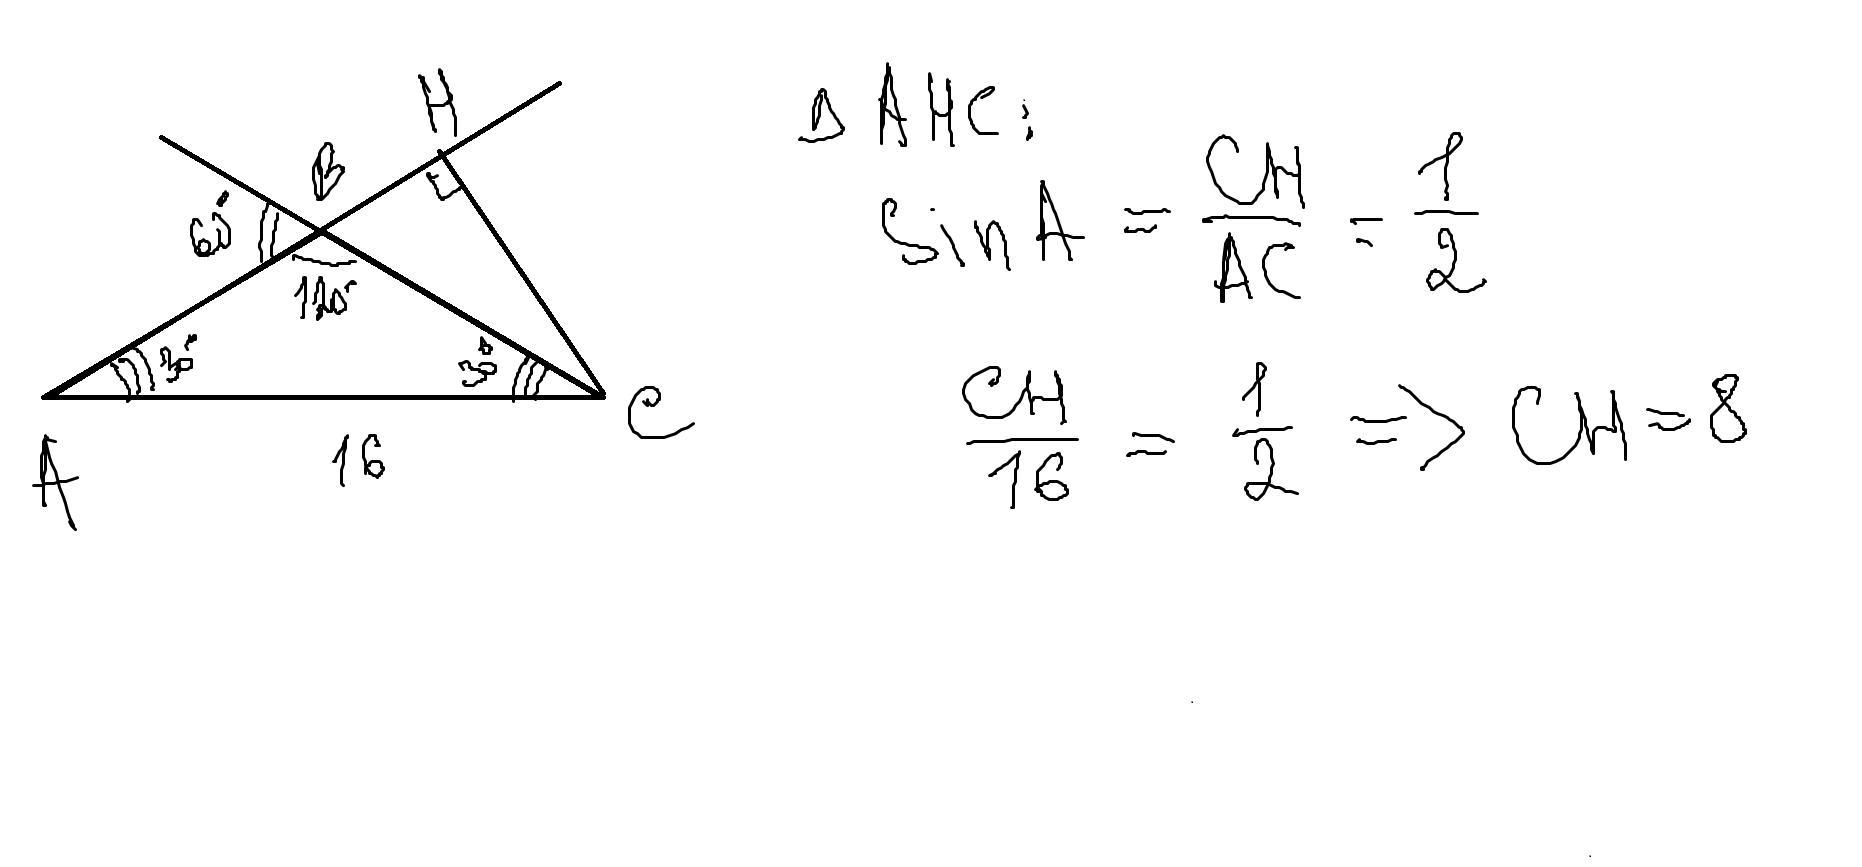 H
B
60°
120°
30°
30°
A
16
C
Δ AHC:
sin A = CH/AC = 1/2
CH/16 = 1/2 => CH = 8